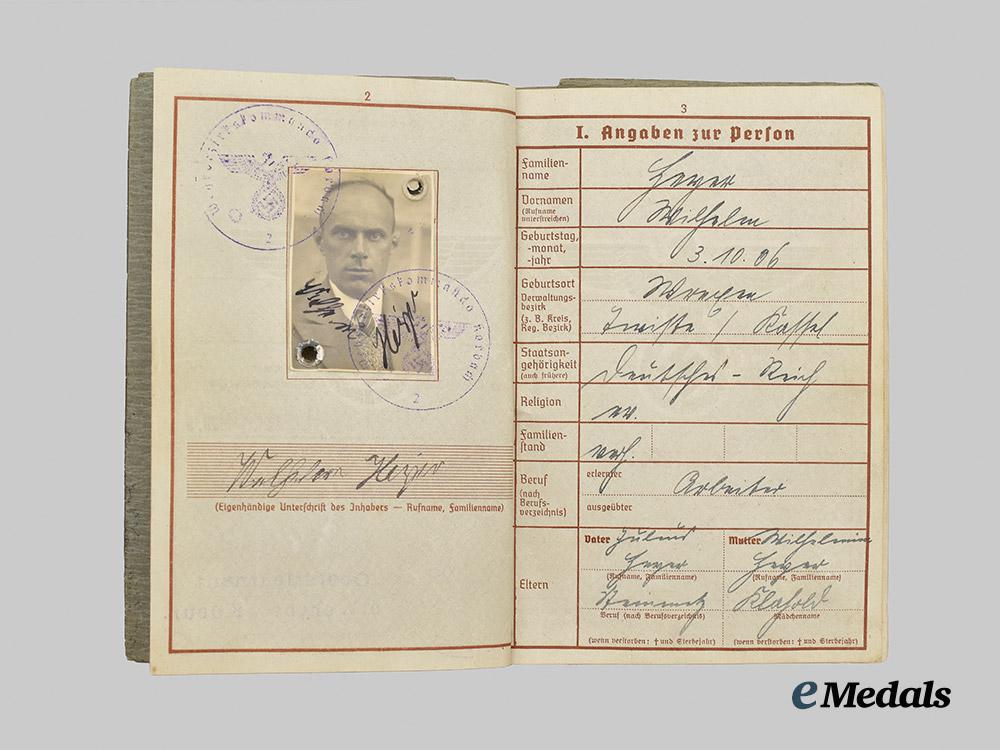 2
Wehrbezirkskommando Korbach
2
Wilhelm Heyer
Wehrbezirkskommando Korbach
2
Wilhelm Heyer
(Eigenhändige Unterschrift des Inhabers — Rufname, Familienname)
3
I. Angaben zur Person
Familien-
name
Heyer
Vornamen
(Rufname
unterstreichen)
Wilhelm
Geburtstag,
-monat,
-jahr
3. 10. 06
Geburtsort
Verwaltungs-
bezirk
(z. B. Kreis,
Reg. Bezirk)
Wrexen
Twiste / Kassel
Staatsan-
gehörigkeit
(auch frühere)
Deutsches - Reich
Religion
ev.
Familien-
stand
verh.
Beruf
(nach
Berufs-
verzeichnis)
erlernter
Arbeiter
ausgeübter
Eltern
Vater Julius
Heyer
(Rufname, Familienname)
Steinmetz
Beruf (nach Berufsverzeichnis)
(wenn verstorben: † und Sterbejahr)
Mutter Wilhelmine
Heyer
(Rufname, Familienname)
Klahold
Mädchenname
(wenn verstorben: † und Sterbejahr)
eMedals